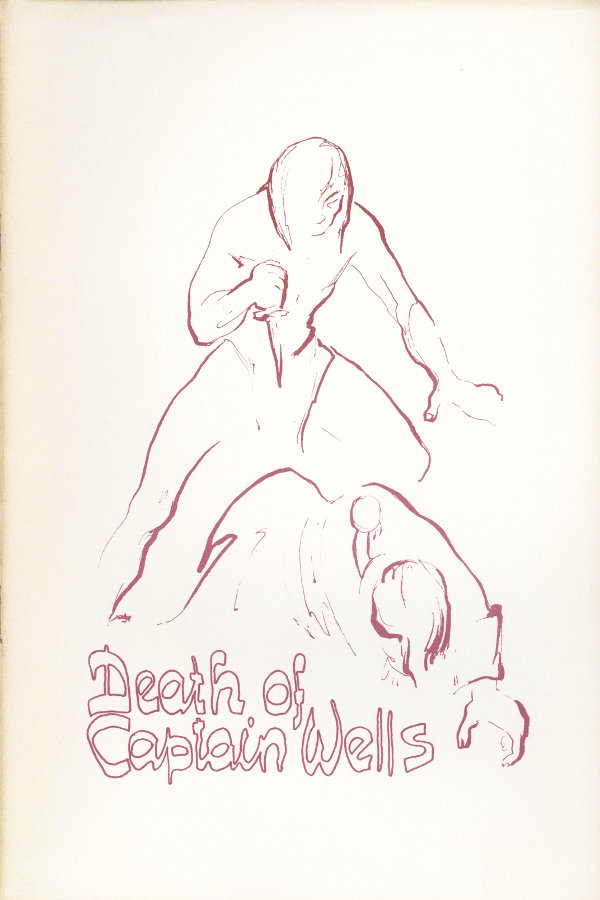 Death of
Captain Wells